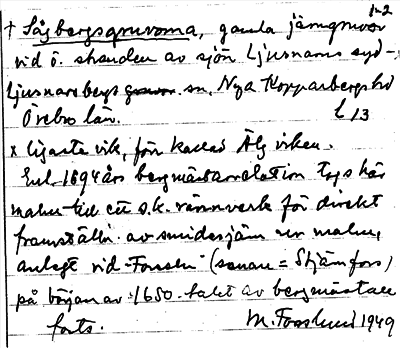 1-2
† Sågbergsgruvorna, gamla järngruvor
vid ö. stranden av sjön Ljusnarns syd-
Ljusnarsbergs sn, Nya Kopparbergs bd
Örebro län. L 13
x ligaste vik, förr kallad Älgviken.
Enl. 1694 års bergmästarrelation togs här
malm till ett s.k. rännverk för direkt
framställn. av smidesjärn ur malm,
anlagt vid Forsen (senare = Stjärnfors)
på början av 1650-talet av bergmästare
forts. M. Forslund 1949